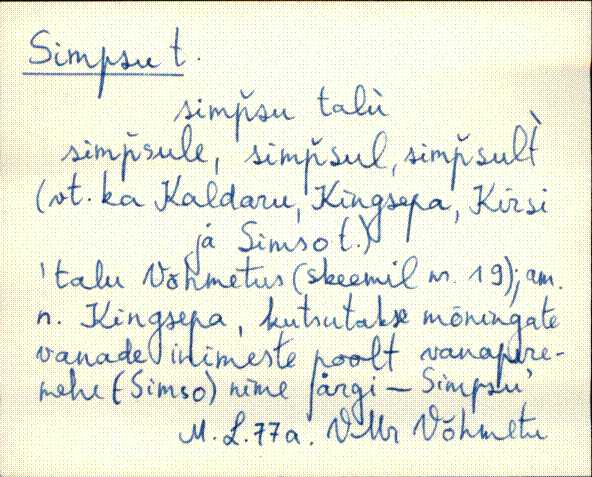 Simpsu t.
simp̆su talù
simp̆sule, simp̆sul, simp̆sult̀
(vt. ka Kaldaru, Kingsepa, Kirsi
ja Simso t.)
'talu Võhmetus (skeemil nr. 19); am.
n. Kingsepa, kutsutakse mõningate
vanade inimeste poolt vanapere-
mehe (Simso) nime järgi – Simpsu'
M. L. 77a. VMr Võhmetu